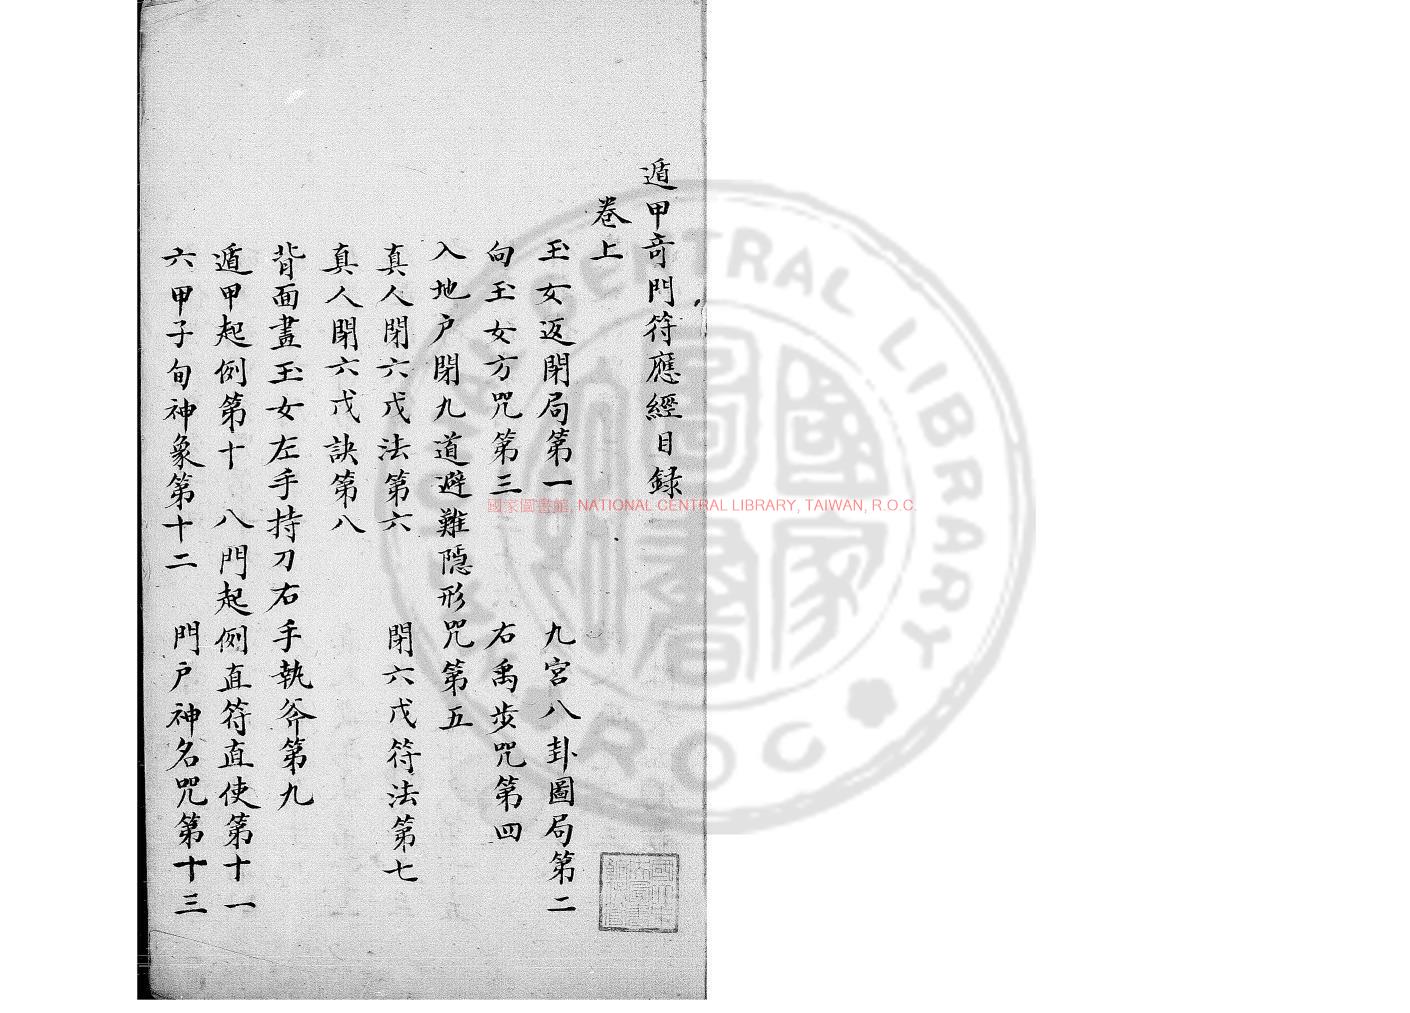 遁甲竒門符應經目録
卷上
玉女返閉局第一 九宮八卦圖局第二
向玉女方咒第三 右禹步咒第四
入地户閉九道避難隱形咒第五
真人閉六戊法第六 閉六戊符法第七
真人閉六戊訣第八
背面畫玉女左手持刀右手執斧第九
遁甲起例第十 八門起例直符直使第十一
六甲子旬神象第十二 門户神名咒第十三
國家圖書館, NATIONAL CENTRAL LIBRARY, TAIWAN, R.O.C.